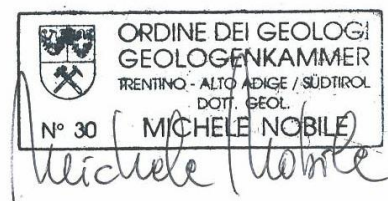 ORDINE DEI GEOLOGI
GEOLOGENKAMMER
TRENTINO - ALTO ADIGE / SÜDTIROL
DOTT. GEOL.
N° 30 MICHELE NOBILE
Michele Nobile